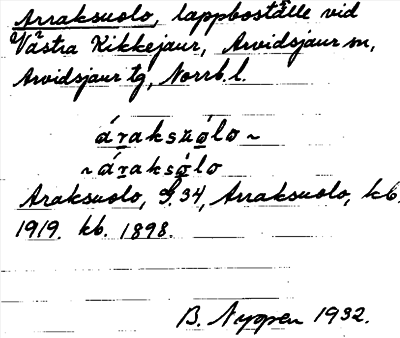 Arraksuolo, lappboställe vid
Västra Kikkejaur, Arvidsjaur sn,
Arvidsjaur tg, Norrb. l.
árakszuolo ~
~ áraksólo
Araksuolo, S. 34, Arraksuolo, kb.
1919. kb. 1898.
B. Nyppen 1932.